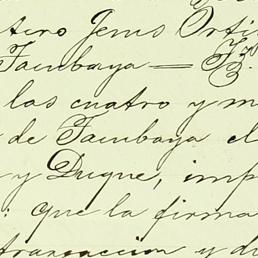 turo Jenus Orti
Tacubaya =
las cuatro y m
de Tacubaya el
y Duque, imp
: que la firma
transaccion y du